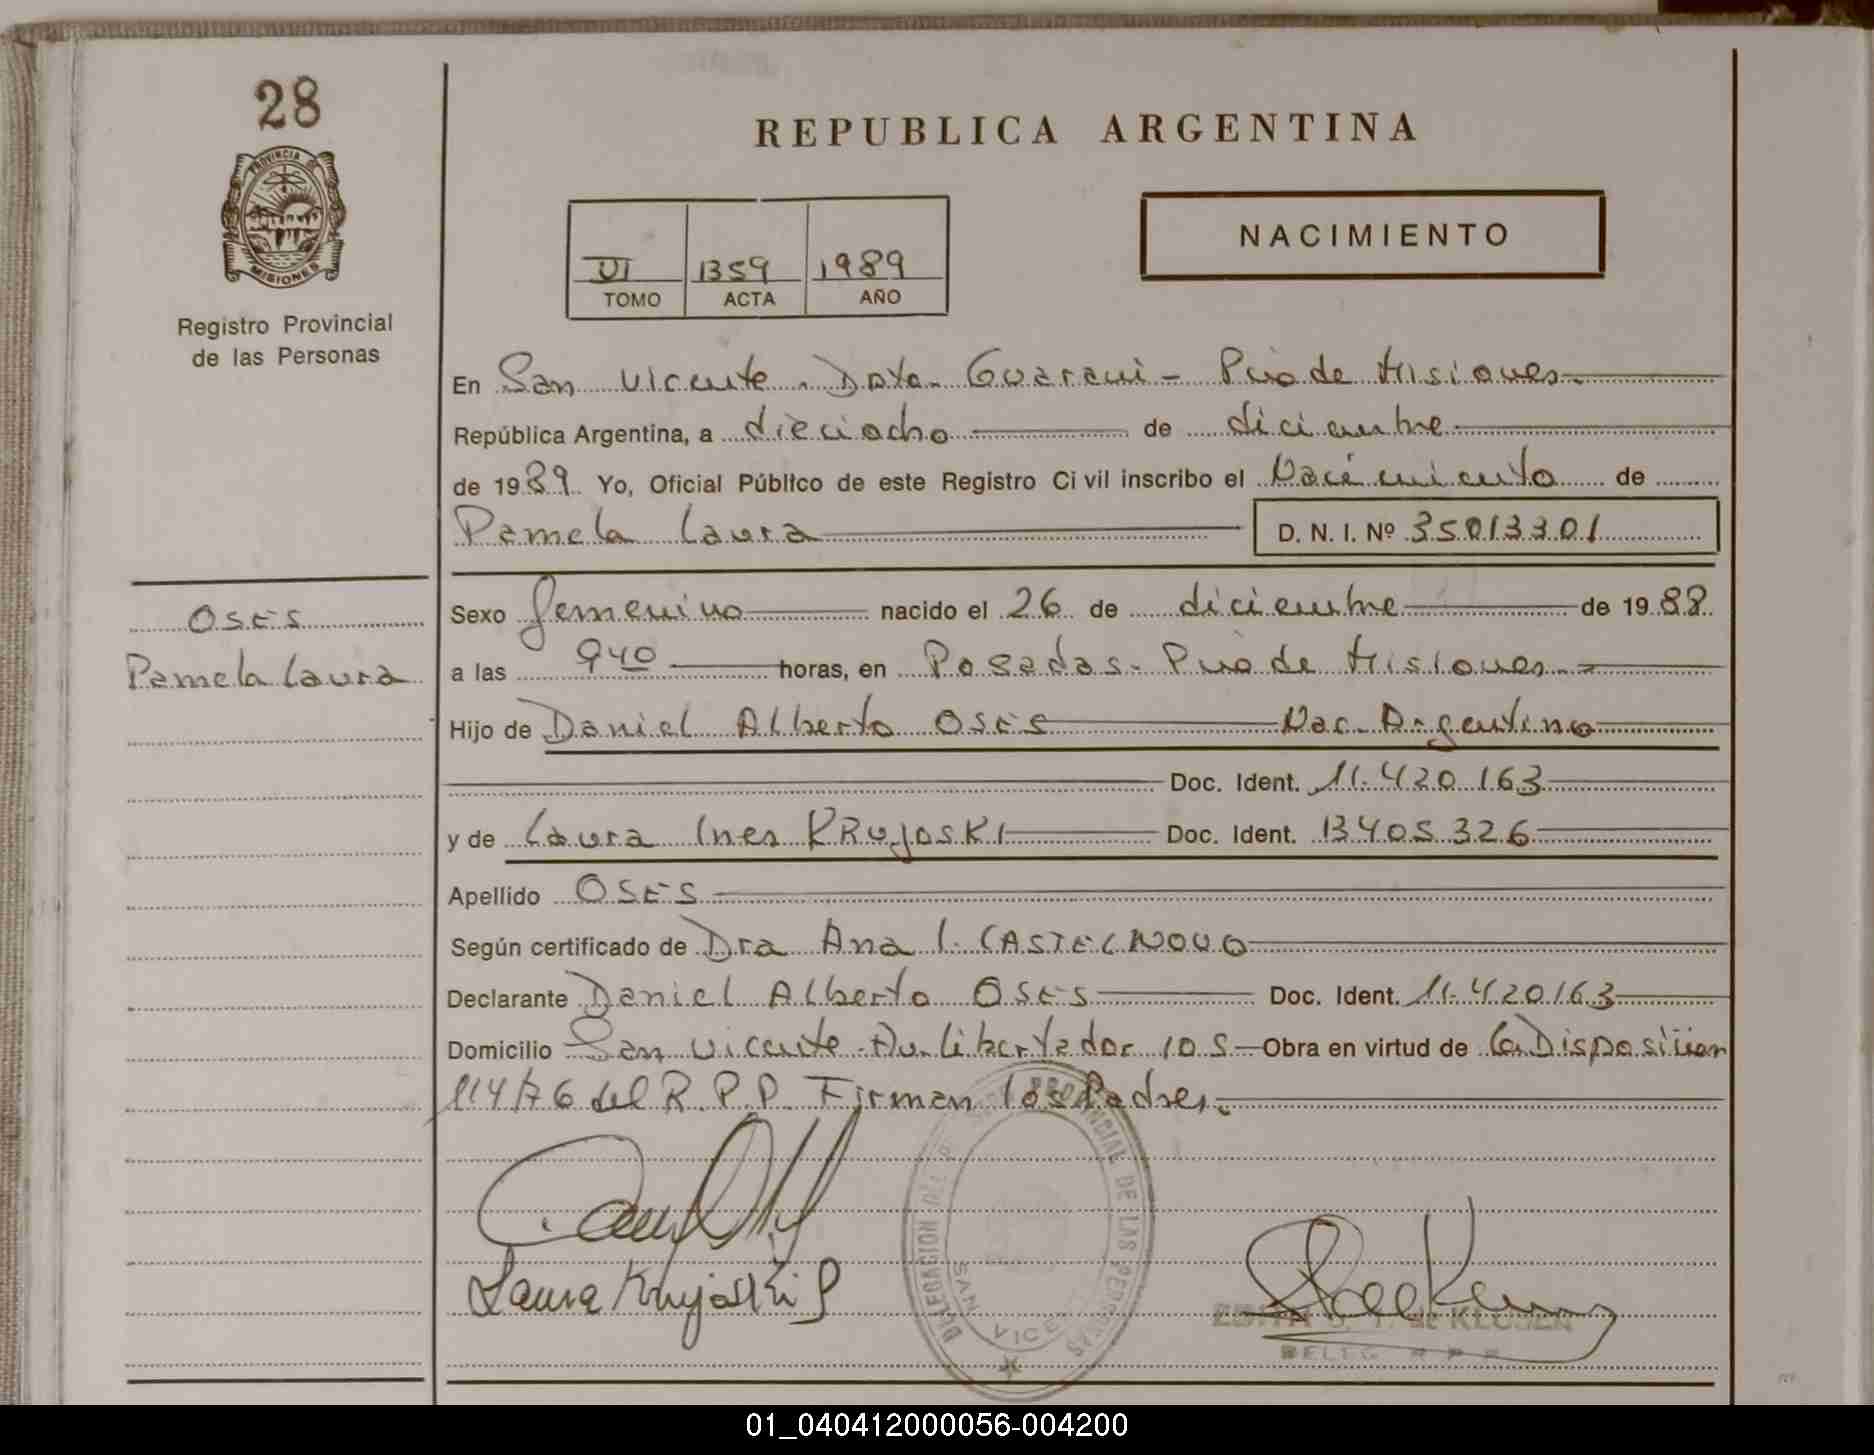 28
PROVINCIA DE
MISIONES
Registro Provincial
de las Personas
REPUBLICA ARGENTINA
NACIMIENTO
VI 1359 1989
TOMO ACTA AÑO
En San Vicente. Dpto. Guarani - Pcia de Misiones.
República Argentina, a dieciocho de diciembre
de 1989 Yo, Oficial Público de este Registro Civil inscribo el Nacimiento de
Pamela Laura D. N. I. Nº 35013301
OSES
Pamela Laura
Sexo femenino nacido el 26 de diciembre de 1988
a las 940 horas, en Posadas. Pcia de Misiones.
Hijo de Daniel Alberto OSES Nac. Argentino
Doc. Ident. 11.420.163
y de Laura Ines KRUJOSKI Doc. Ident. 13405326
Apellido OSES
Según certificado de Dra Ana I. CASTELNOVO
Declarante Daniel Alberto OSES Doc. Ident. 11.420163
Domicilio San Vicente. Av. Libertador 105 Obra en virtud de la Disposición
114/76 del R.P.P. Firman los Padres.
Laura Krujoski
DELEGACION DEL PROVINCIAL DE LAS PERSONAS
SAN VICENTE
EDITH de KLUSEN
DELEG. R.P.P.
01_040412000056-004200